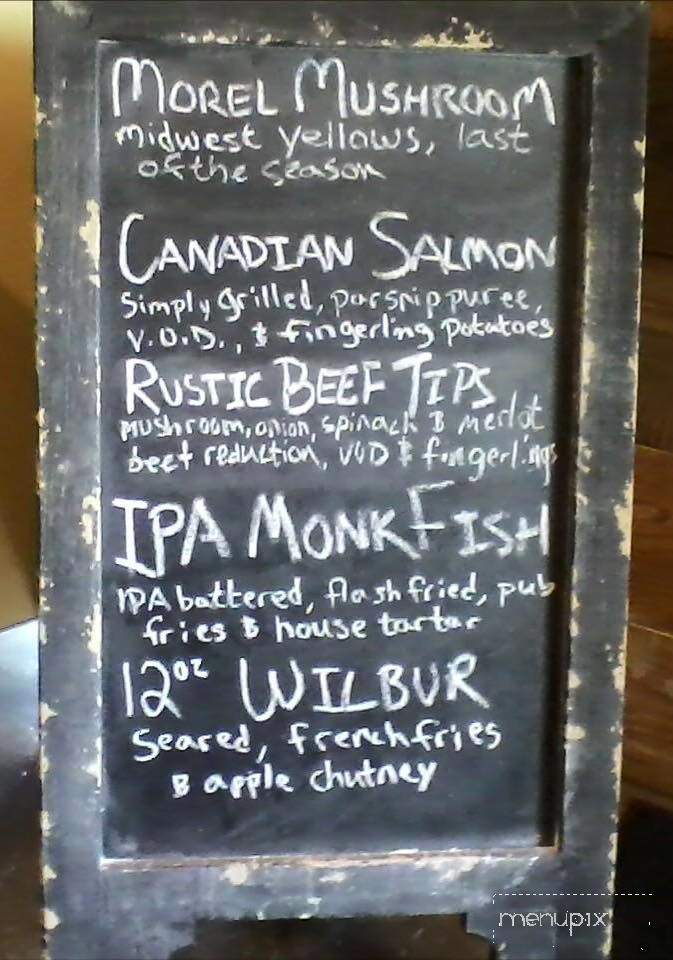 MOREL MUSHROOM
midwest yellows, last
of the season
CANADIAN SALMON
Simply grilled, parsnip puree,
V.O.D., & fingerling potatoes
RUSTIC BEEF TIPS
Mushroom, onion, spinach & Merlot
beef reduction, VOD & fingerlings
IPA MONKFISH
IPA battered, flash fried, pub
fries & house tartar
12oz WILBUR
Seared, french fries
& apple chutney
menupix